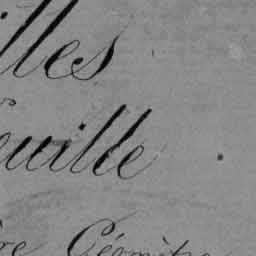 illes
euille .
re Géomètre